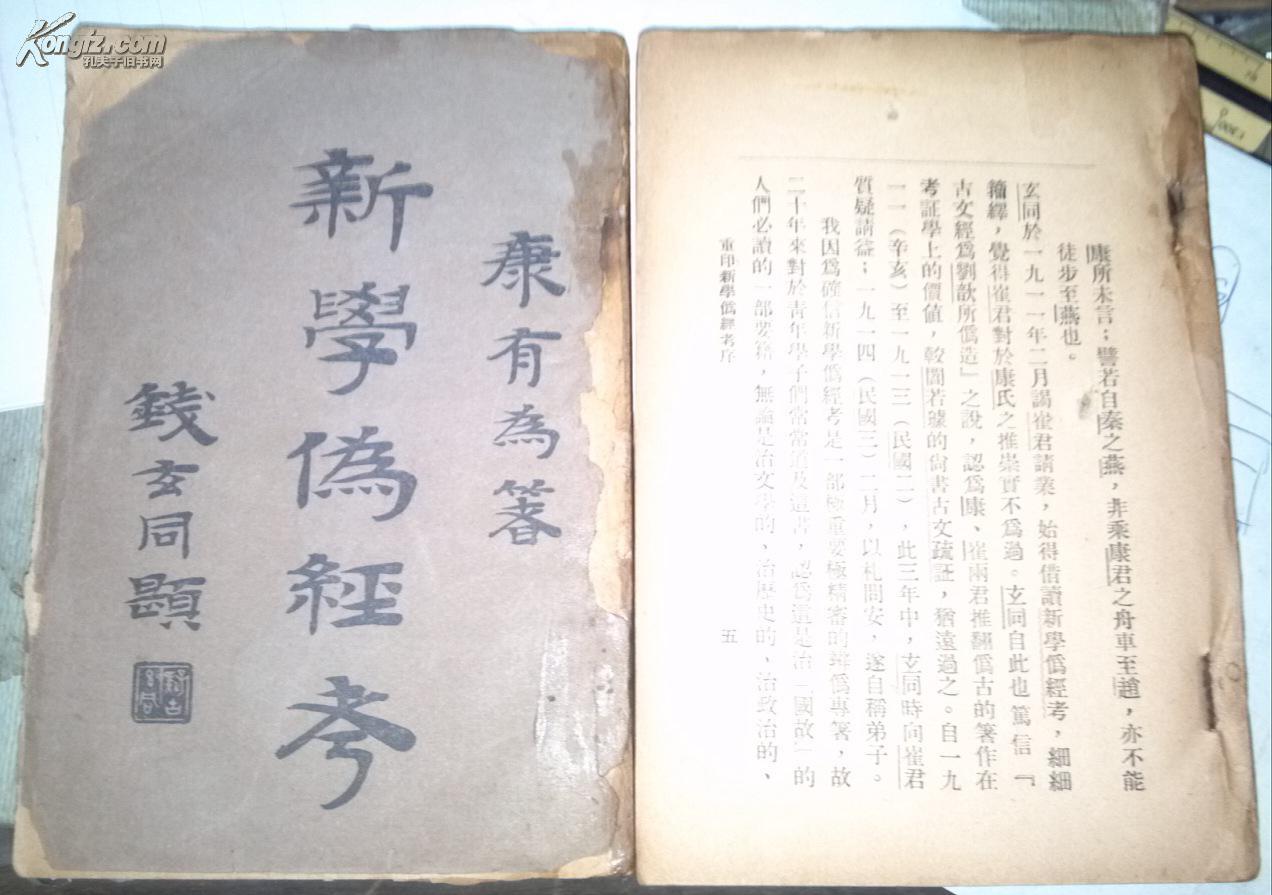 Kongfz.com
孔夫子旧书网
康有為箸
新學偽經考
錢玄同題
康所未言；譬若自秦之燕，非乘康君之舟車至趙，亦不能
徒步至燕也。
玄同於一九一一年二月謁崔君請業，始得借讀新學僞經考，細細
籀繹，覺得崔君對於康氏之推崇實不爲過。玄同自此也篤信『
古文經爲劉歆所僞造』之說，認爲康、崔兩君推翻僞古的箸作在
考証學上的價値，較閻若璩的尙書古文疏証，猶遠過之。自一九
一一（辛亥）至一九一三（民國二），此三年中，玄同時向崔君
質疑請益；一九一四（民國三）二月，以札問安，遂自稱弟子。
我因爲確信新學僞經考是一部極重要極精審的辨僞專箸，故
二十年來對於靑年學子們常常道及這書，認爲這是治「國故」的
人們必讀的一部要籍，無論是治文學的、治歷史的、治政治的、
重印新學僞經考序
五